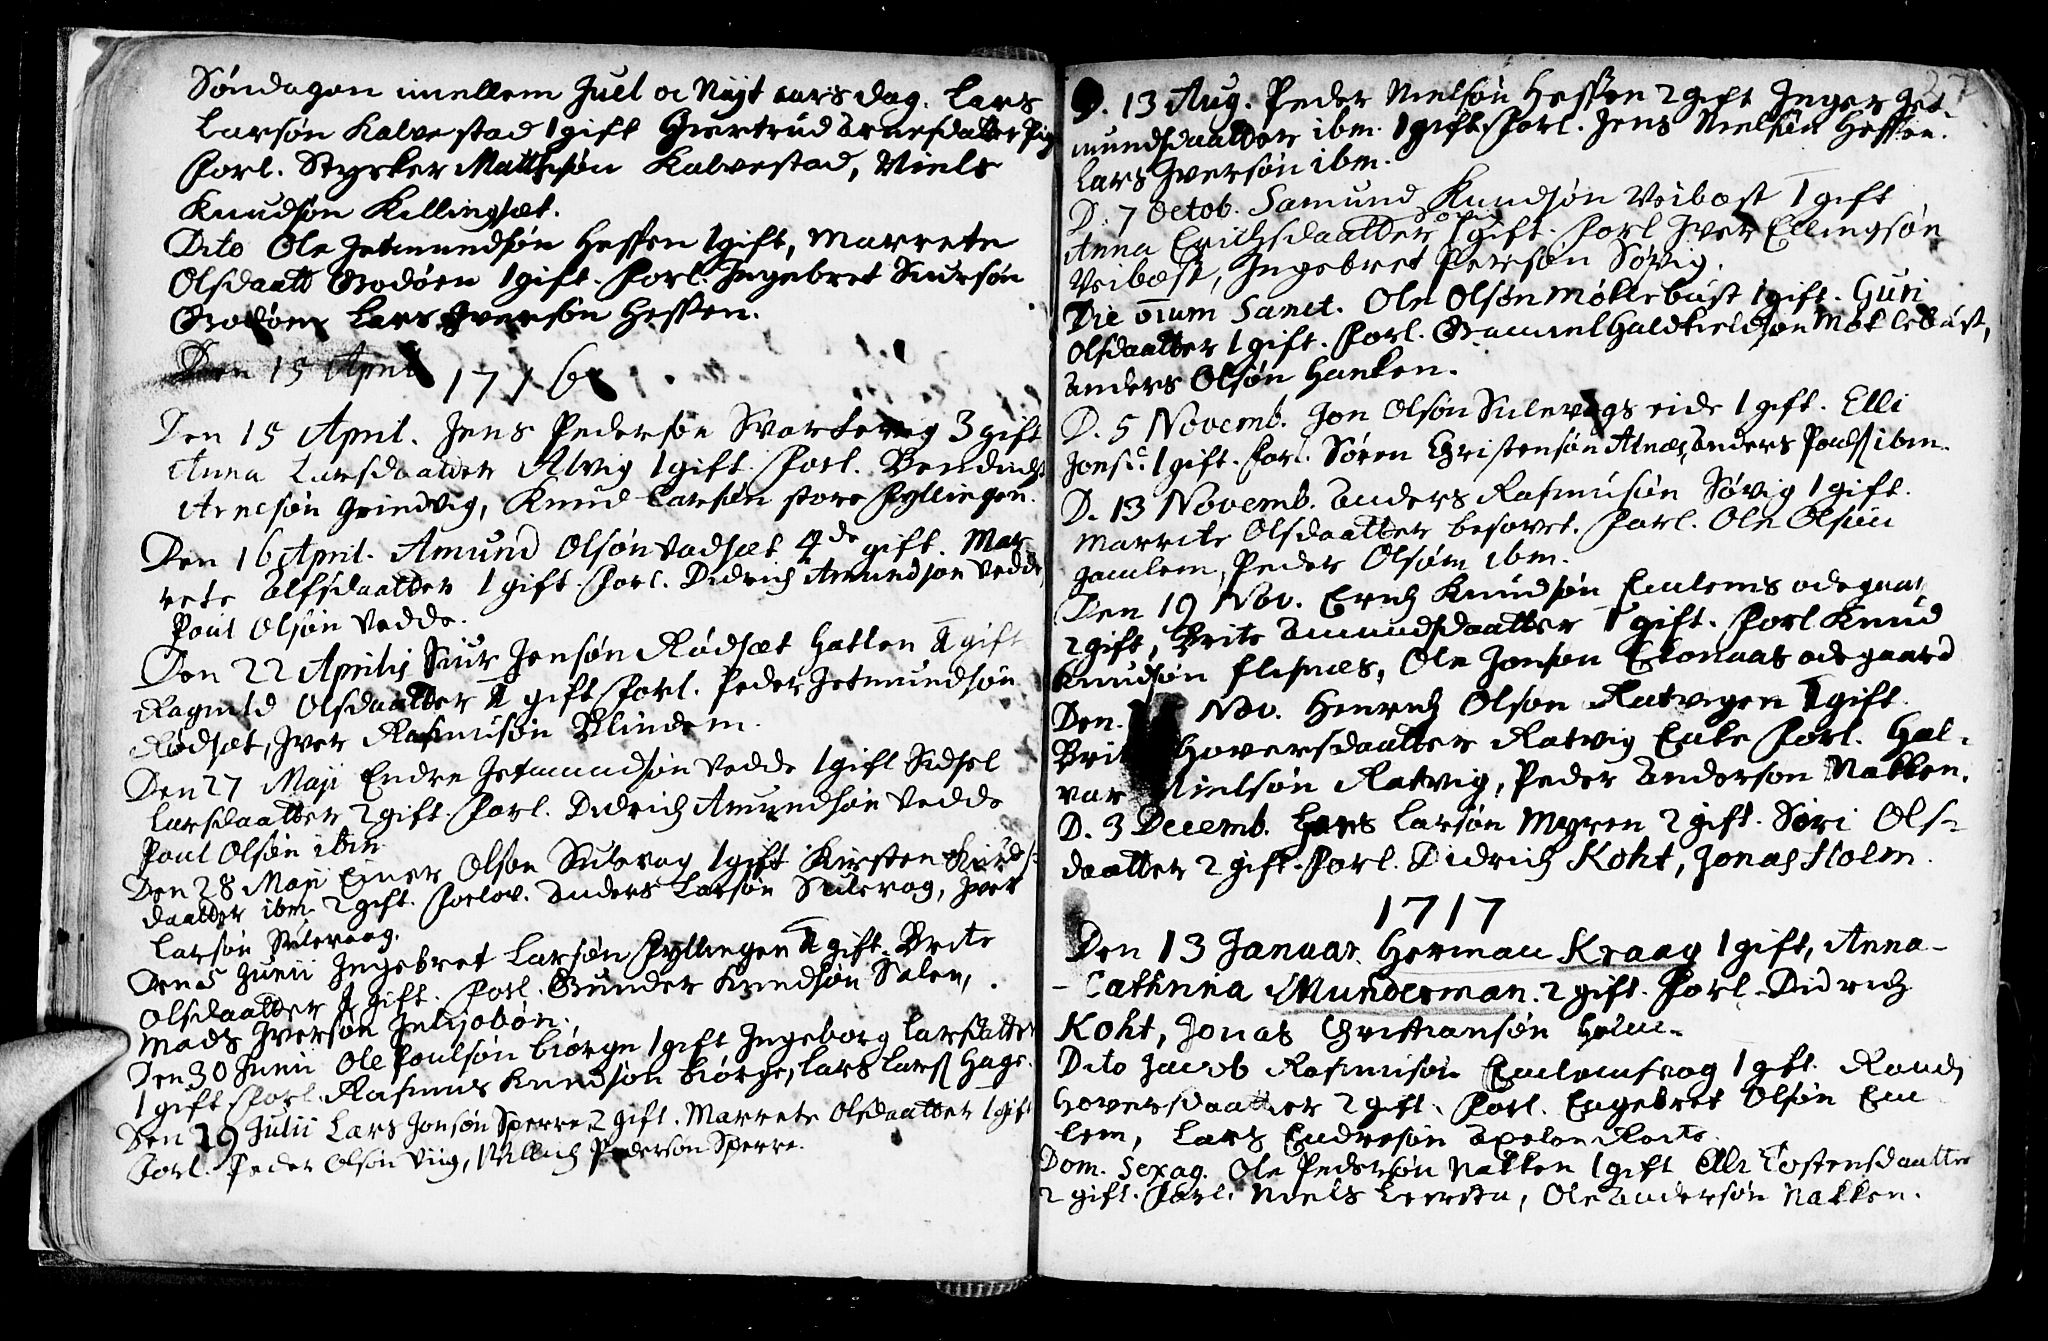 Søndagen imellem Juel oc Nyt aarsdag. Lars
Larsøn Kalvestad 1 gift Giertrud Arnesdatter
Forl. Stycker Mathisøn Kalvestad, Niels
Knudsøn Killingsæt.
Dito Ole Jetmundsøn Hessen 1 gift, Marrete
Olsdaatt Godøen 1 gift. Forl. Ingebret Siursøn
Godøen Lars Iversøn Hessen.
Den 15 April
1716
Den 15 April. Jens Pedersøn Svartevig 3 gift
Anna Larsdaatter Alvig 1 gift. Forl. Bendicht
Arnesøn Grindvig, Knud Larsøn store Fyllingen.
Den 16 April. Amund Olsøn Vadsæt 4de gift. Mar
rete Alfsdaatter 1 gift. Forl. Didrich Amundsøn Vedde,
Poul Olsøn Vedde.
Den 22 Aprilis Siur Jensøn Rødsæt Hatlen 1 gift
Ragnild Olsdaatter 1 gift Forl. Peder Jetmundsøn
Rødsæt, Iver Rasmusøn Blindem.
Den 27 Maji Endre Jetmundsøn Vedde 1 gift Sidsel
Larsdaatter 2 gift. Forl. Didrich Amundsøn Vedde
Poul Olsøn ibm
Den 28 Maji Einer Olsøn Sulevag 1 gift Kirsten
daatter ibm 2 gift. Forlov. Anders Larsøn Sulevag, Iver
Larsøn Sulevaag.
Den 5 Junii Ingebret Larsøn Fyllingen 1 gift. Brite
Olsdaatter 1 gift. Forl. Gunder Knudsøn Salen,
Mads Iversøn
Den 30 Junii Ole Poulsøn Biørge 1 gift Ingeborg Larsdatter
1 gift Forl. Rasmus Knudsøn Biørge, Lars Lars Hage.
Den 29 Julii Lars Jonsøn Sperre 2 gift. Marrete Olsdaatter 1 gift
Forl. Peder Olsøn Viig, Willich Pedersøn Sperre.
27
D. 13 Aug. Peder Nielsøn Hessen 2 gift Inger Jet
mundsdaatter ibm. 1 gift. Forl. Jens Nielsøn Hessen.
Lars Iversøn ibm.
D. 7 Octob. Samund Knudsøn Veibust 1 gift
Søvig
Anna Erichsdaatter 1 gift. Forl Iver Ellingsøn
Veibust, Ingebret Pedersøn Søvig.
Die õium Sanct. Ole Olsøn Møklebust 1 gift. Guri
Olsdaatter 1 gift. Forl. Gammel Haldkieldsøn Møklebust,
Anders Olsøn Hanken.
D. 5 Novemb. Jon Olsøn Sulevogs eide 1 gift. Elli
Jonsd. 1 gift. Forl. Søren Christensøn Alnæs, Anders Pouls ibm.
D. 13 Novemb. Anders Rasmusøn Søvig 1 gift.
Marrite Olsdaatter besovet. Forl. Ole Olsøn
Gamlem, Peder Olsøn ibm.
Den 19 Nov. Erich Knudsøn Emlems odegaar
2 gift, Brite Amundsdaatter 1 gift. Forl Knud
Knudsøn Flisnæs, Ole Jonsøn Ekonaas odegaard
Den. Nov. Henrich Olsøn Ratvigen 1 gift
Brit Hoversdaatter Ratvig Enke Forl. Hal-
var Nielsøn Ratvig, Peder Andersøn Nakken.
D. 3 Decemb. Hans Larsøn Myren 2 gift. Siri Ols-
daatter 2 gift. Forl. Didrich Koht, Jonas Holm.
1717
Den 13 Januar. Herman Kraag 1 gift, Anna-
- Cathrina Munderman. 2 gift. Forl. Didrich
Koht, Jonas Christiansøn Holm.
Dito Jacob Rasmusøn Emlemsvog 1 gift. Randi
Hoversdaatter 2 gift. Forl. Engebret Olsøn Em
lem, Lars Endresøn
Dom. Sexag. Ole Pedersøn Nakken 1 gift Elli Tostensdaatter
2 gift. Forl. Niels, Ole Andersøn Nakken.